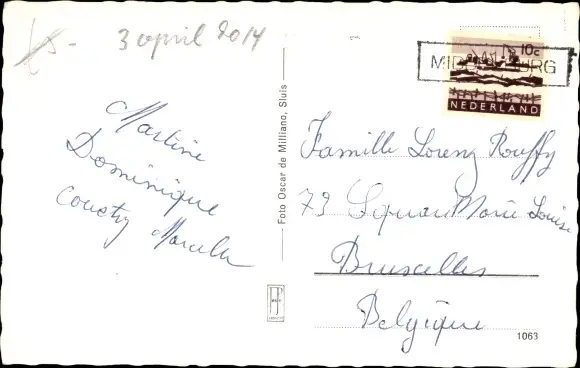 3 april 2014
10c
MIDDELBURG
NEDERLAND
Martine
Dominique
Marcelle
Foto Oscar de Milliano, Sluis
Famille Lorenz Rouffy
79 Square Marie Louise
Bruxelles
Belgique
1063